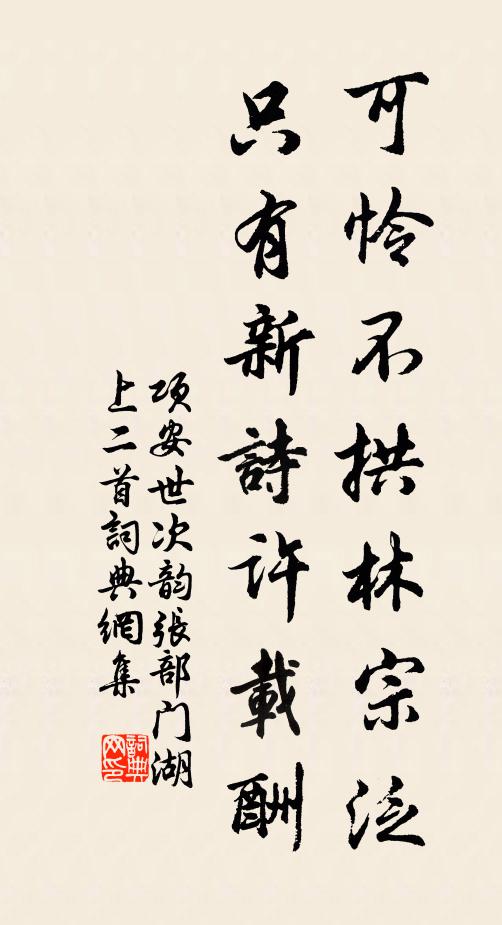 可怜不拱林宗泛
只有新詩許載酬
项安世次韵張部门湖
上二首詞典網集
詞典
网印